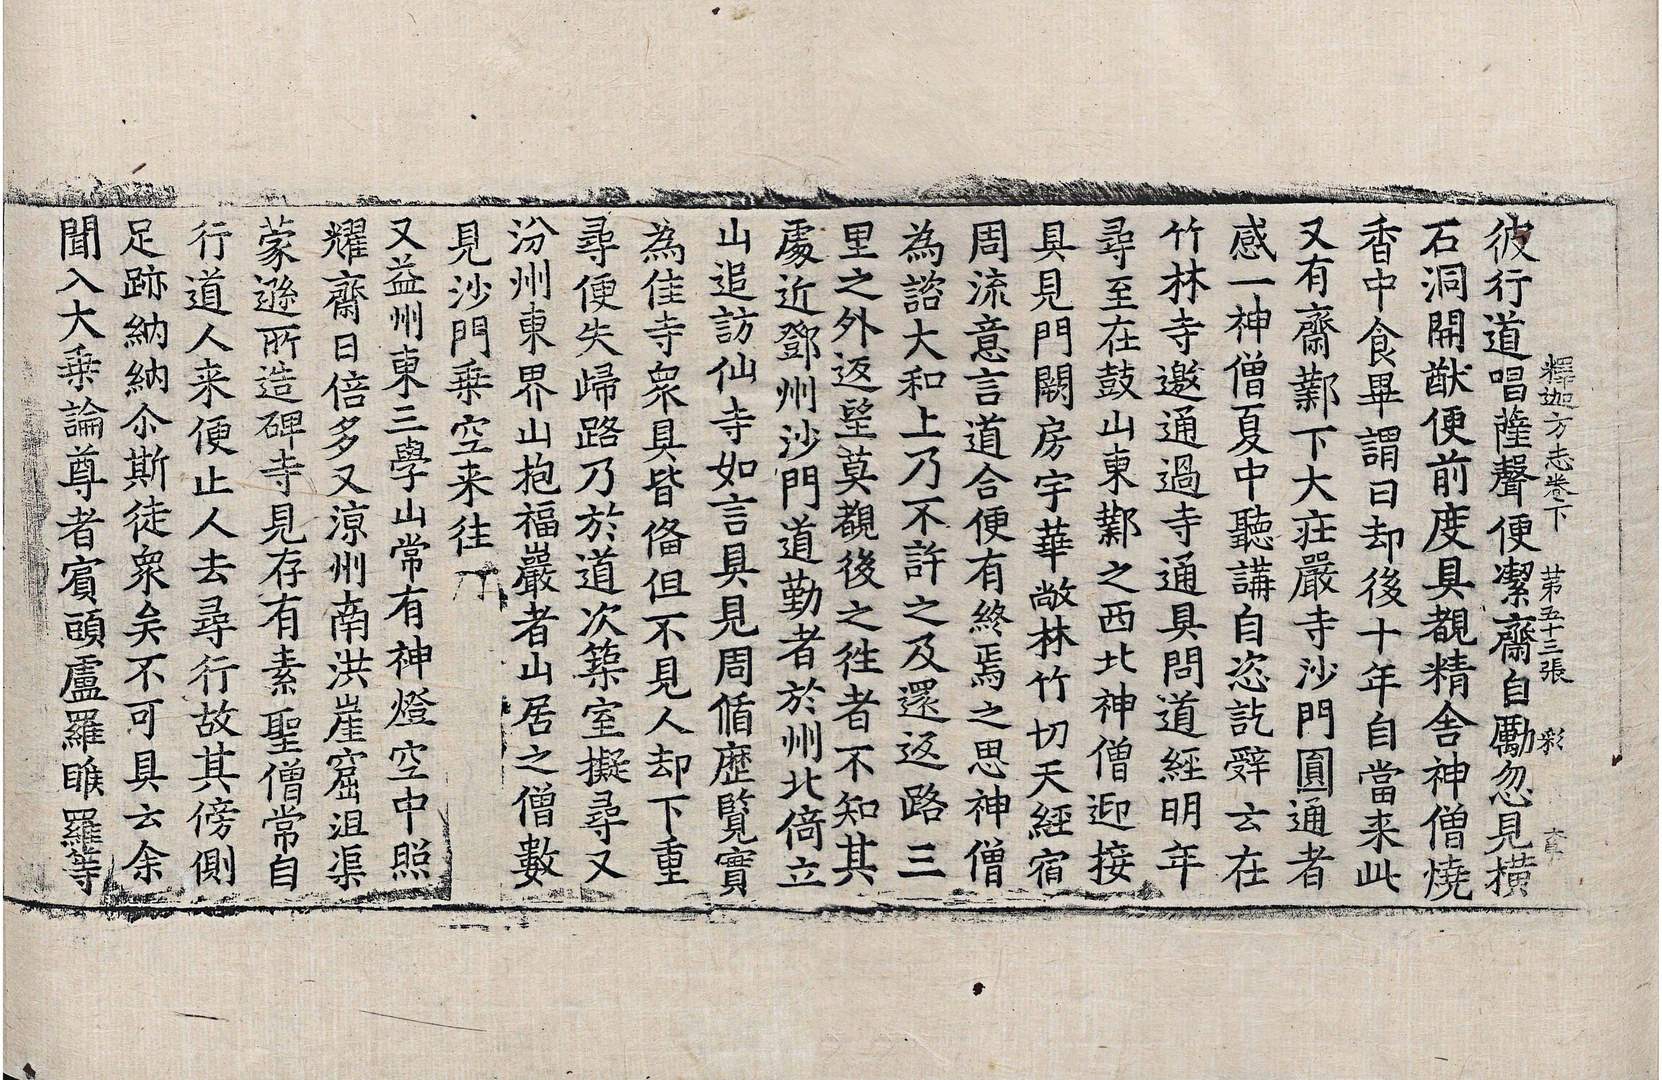 釋迦方志卷下 第五十三張 彩
彼行道唱薩聲便潔齋自勵忽見橫
石洞開猷便前度具覩精舍神僧燒
香中食畢謂曰却後十年自當来此
又有齋鄴下大莊嚴寺沙門圓通者
感一神僧夏中聽講自恣訖辝云在
竹林寺邀通過寺通具問道經明年
尋至在鼓山東鄴之西北神僧迎接
具見門闕房宇華敞林竹切天經宿
周流意言道合便有終焉之思神僧
為諮大和上乃不許之及還返路三
里之外返望莫覩後之往者不知其
處近鄧州沙門道勤者於州北倚立
山追訪仙寺如言具見周循歷覽實
為佳寺衆具皆俻但不見人却下重
尋便失歸路乃於道次築室擬尋又
汾州東界山抱福巖者山居之僧數
見沙門乗空来往
又益州東三學山常有神燈空中照
耀齋日倍多又涼州南洪崖窟沮渠
蒙遜所造碑寺見存有素聖僧常自
行道人来便止人去尋行故其傍側
足跡納納尒斯徒衆矣不可具云余
聞入大乗論尊者賓頭盧羅睺羅等